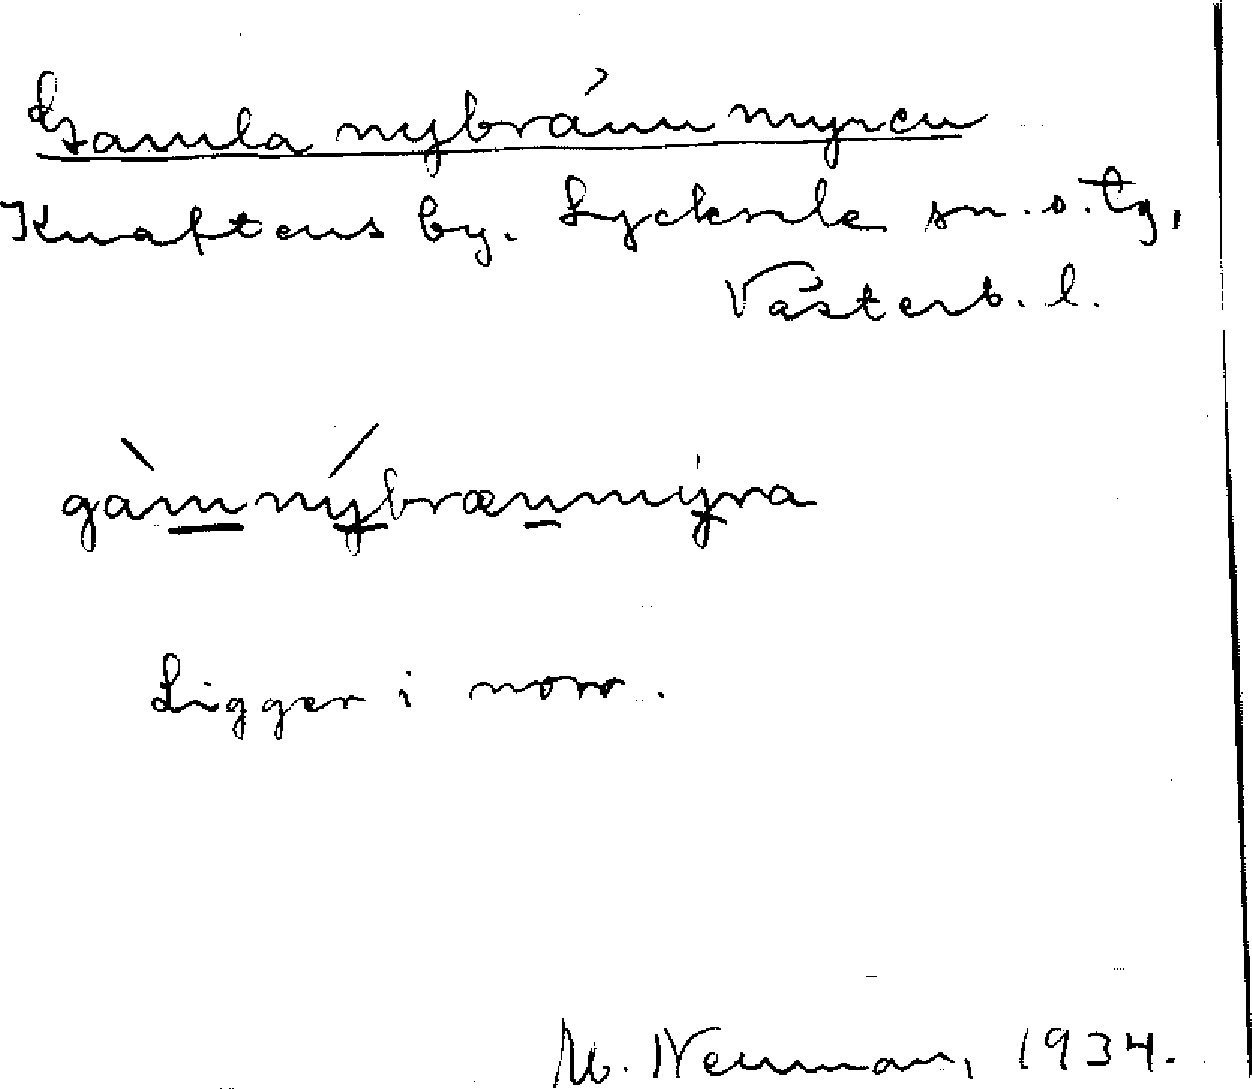 Gamla nybrännmyren
Knaftens by. Lycksele sn. o. tg,
Västerb. l.
gàmnýbrænmyra
Ligger i norr.
M. Neuman, 1934.